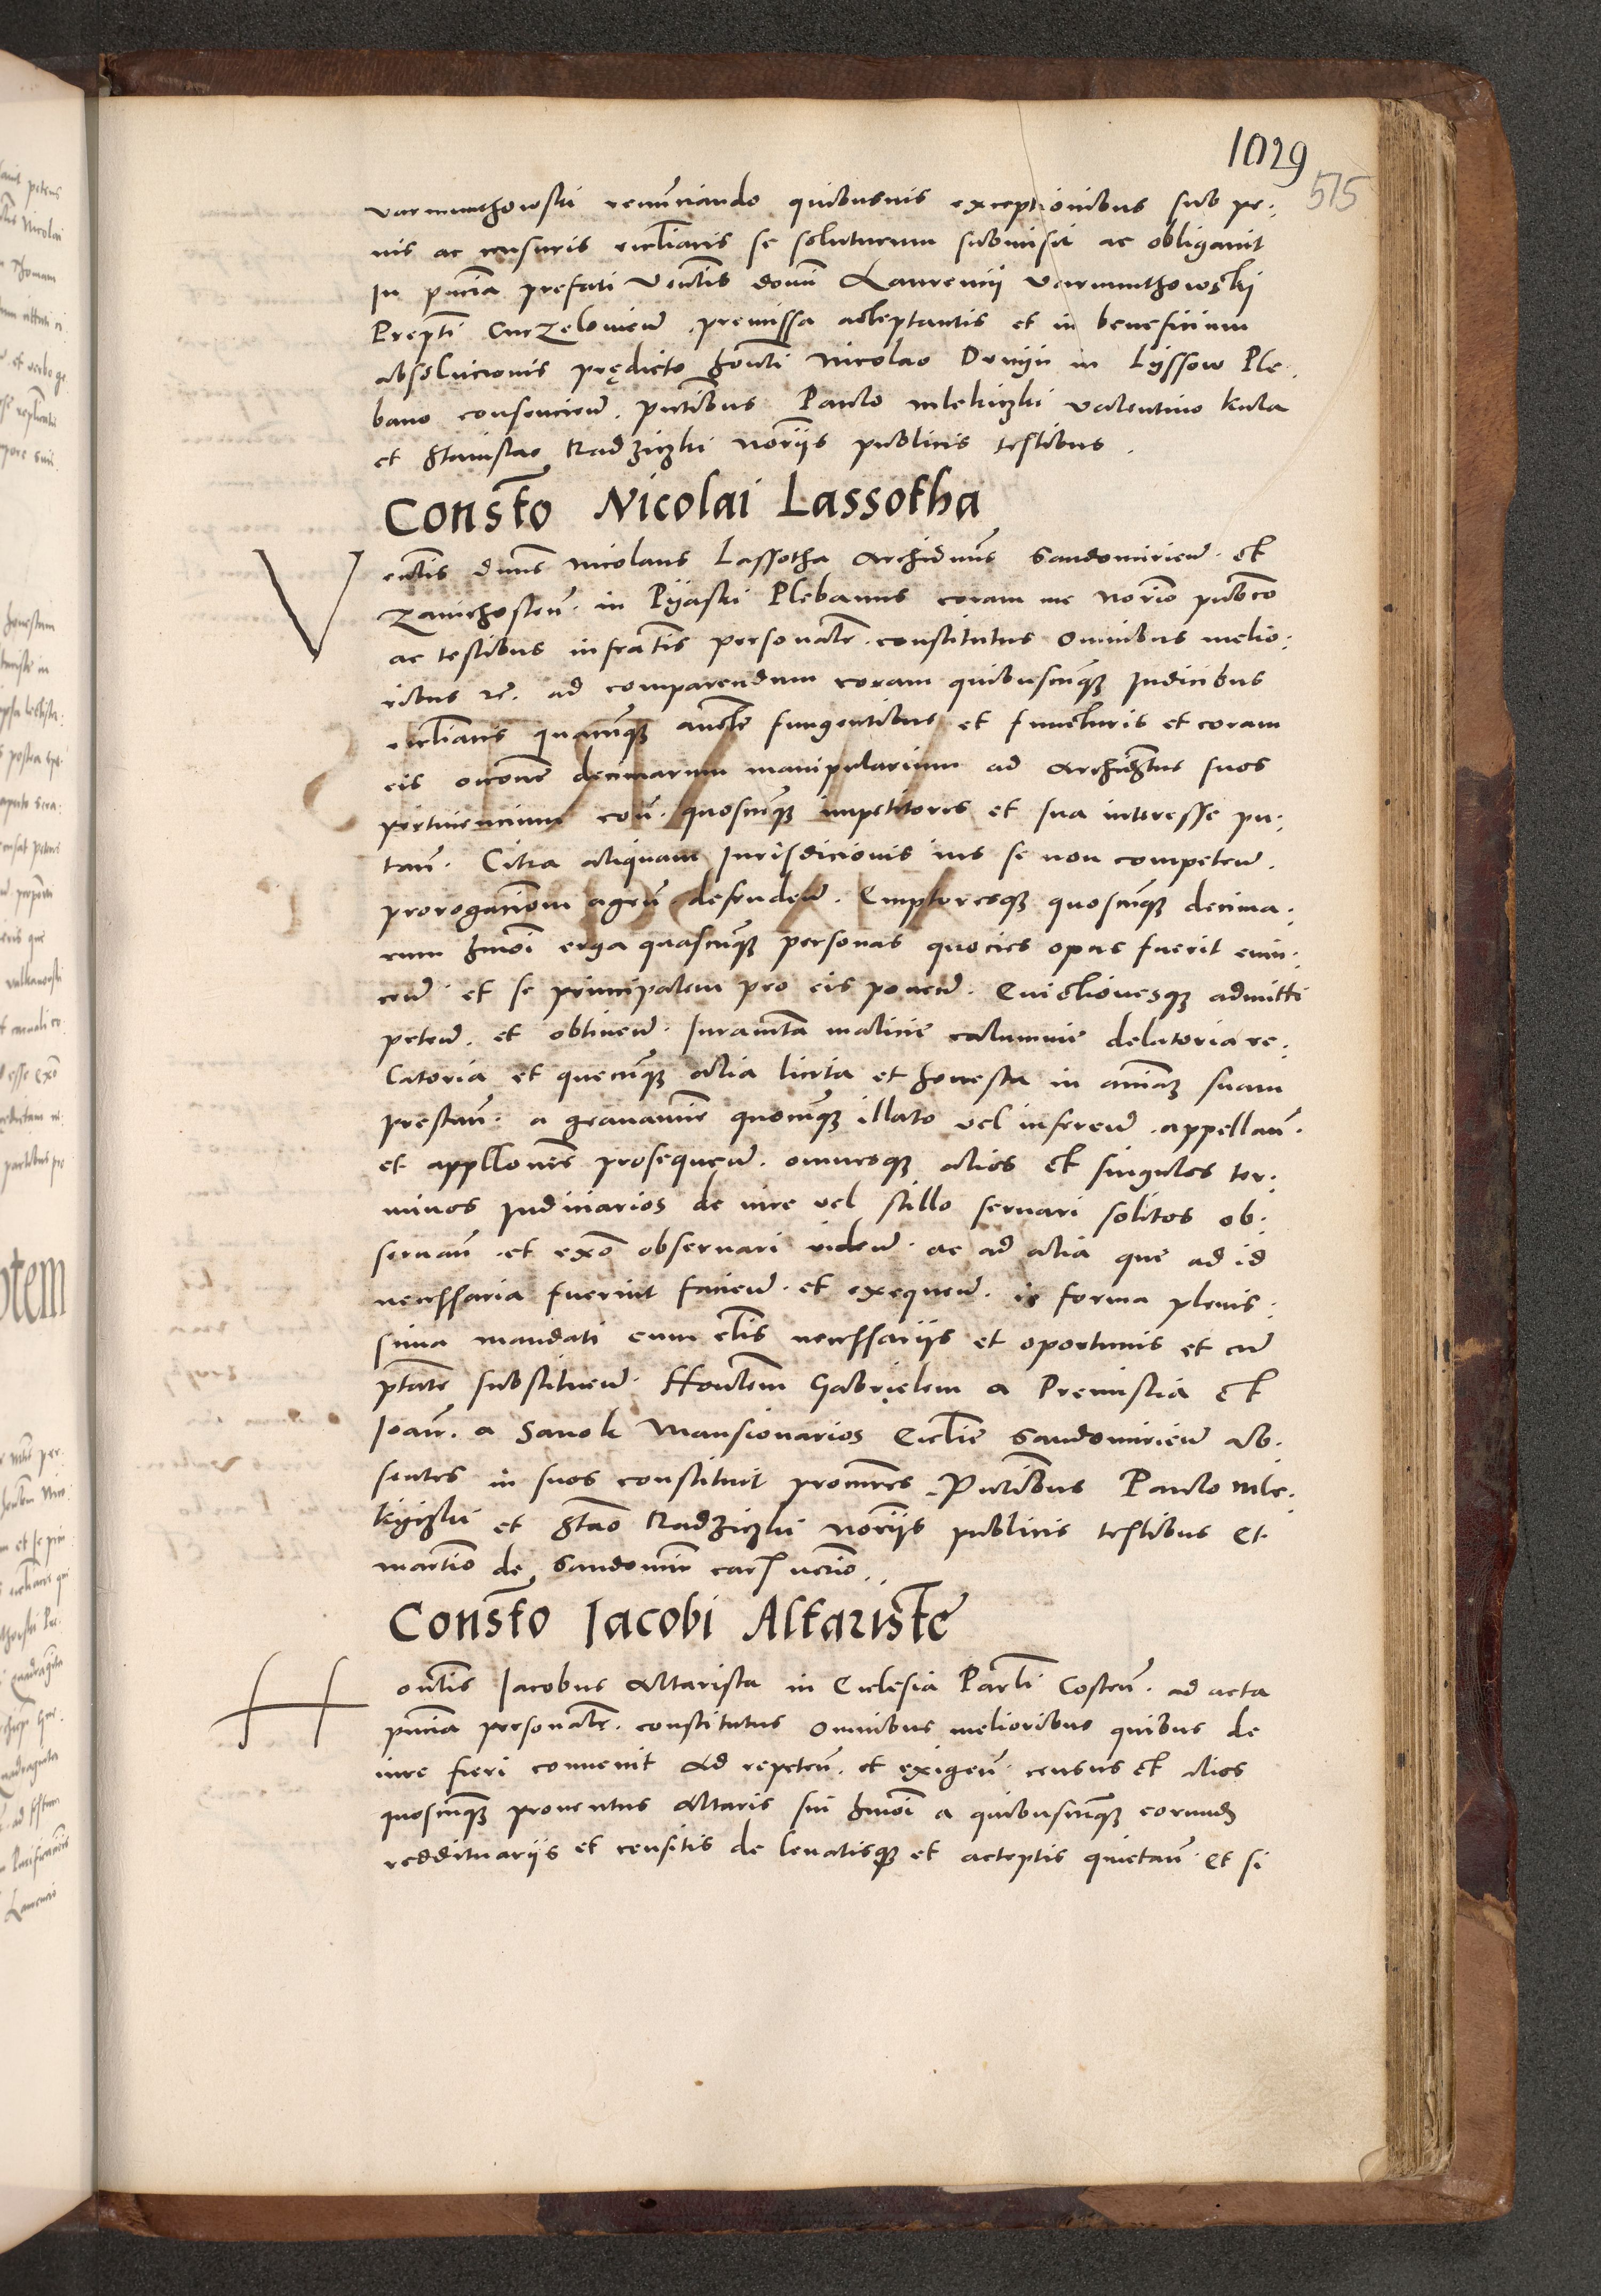 1029
575
varmunthowski renunciando quibusuis exceptionibus sub pe:
nis ac censuris eccliasticis se soluturum submisit ac obligauit
In pntia prefati Ventlis domi Laurencii Varmunthowski
Prepti Curzelouien premissa acceptantis et in beneficium
absolucionis prędicto honti Nicolao Domini in Lyssow Ple:
bano consencien. pntibus Paulo Mlekiczki Valentino Kula
et Stanislao Radziczki noriis publicis testibus.
Consto Nicolai Lassotha
Venlis dnus Nicolaus Lassotha Archidnus Sandomirien. et
Zauichosten. in Pyaski Plebanus coram me norio publco
ac testibus infratis personalr. constitutus omnibus melio:
ribus etc. ad comparendum coram quibuscunq iudicibus
eccliacis quacunq aucte fungentibus et functuris et coram
eis occone decimarum manipularium ad Archidntus suos
pertinencium con. quoscunq impetitores et sua interesse pu:
tan. Citra aliquam Jurisdicionis ius se non competen.
prorogacionem agen. defenden. Emptoresq quoscunq decima:
rum hmoi erga quascunq personas quocies opus fuerit euin:
cen. et se principalem pro eis ponen. Euictionesq admitti
peten. et obtinen. Juramta malicie calumnie delatoria re:
latoria et quecunq alia licita et honesta in animaz suam
prestan. a grauamine quocunq illato vel inferen. appellan.
et appllones prosequen. omnesq alios et singulos ter:
minos iudiciarios de iure vel stillo seruari solitos ob:
seruan. et exo obseruari viden. ac ad alia que ad id
necessaria fuerint facien. et exequen. in forma plenis:
sima mandati cum clis necessariis et oportunis et cu
ptate substituen. Hontem Gabrielem a Premislia et
Joan. a Sanok Mansionarios Ecclie Sandomirien ab:
sentes in suos constituit procures. Pntibus Paulo Mle:
kyczki et Stao Radziczki noriis publicis testibus et
martino de Sandomir
Consto Jacobi Altariste
Hontlis Jacobus Altarista in Ecclesia Parli Costen. ad acta
pntia personalr. constitutus omnibus melioribus quibus de
iure fieri conuenit Ad repeten. et exigen. census et alios
quoscunq prouentus Altaris sui hmoi a quibuscunq eorund
reddituariis et censitis de leuatisq et acceptis quietan. et si